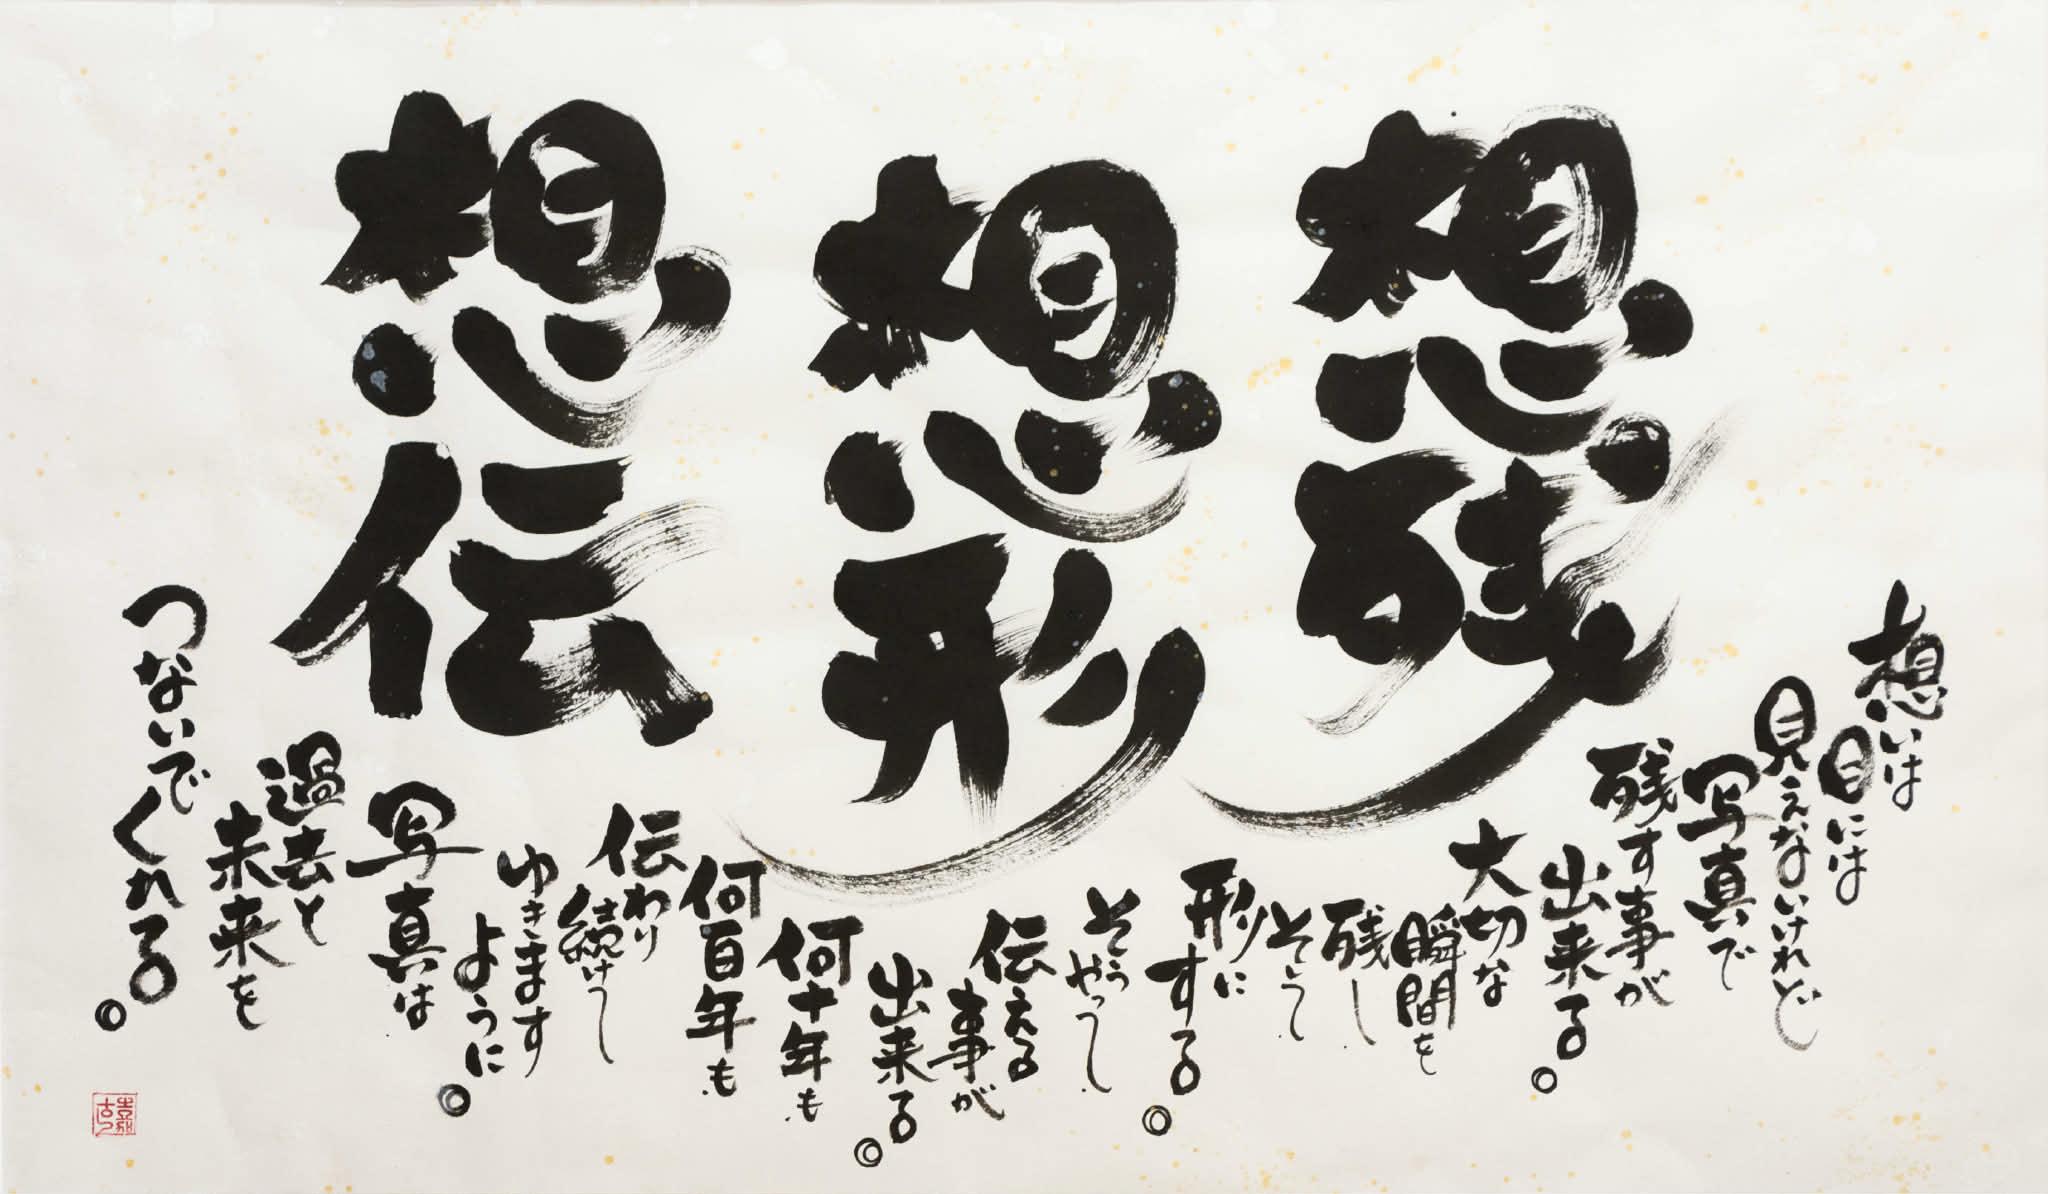 想残
想形
想伝
想いは
目には
見えないけれど
写真で
残す事が
出来る。
大切な
瞬間を
残し
そして
形に
する。
そうやって
伝える
事が
出来る。
何十年も
何百年も
伝わり
続けて
ゆきます
ように。
写真は
過去と
未来を
つないでくれる。